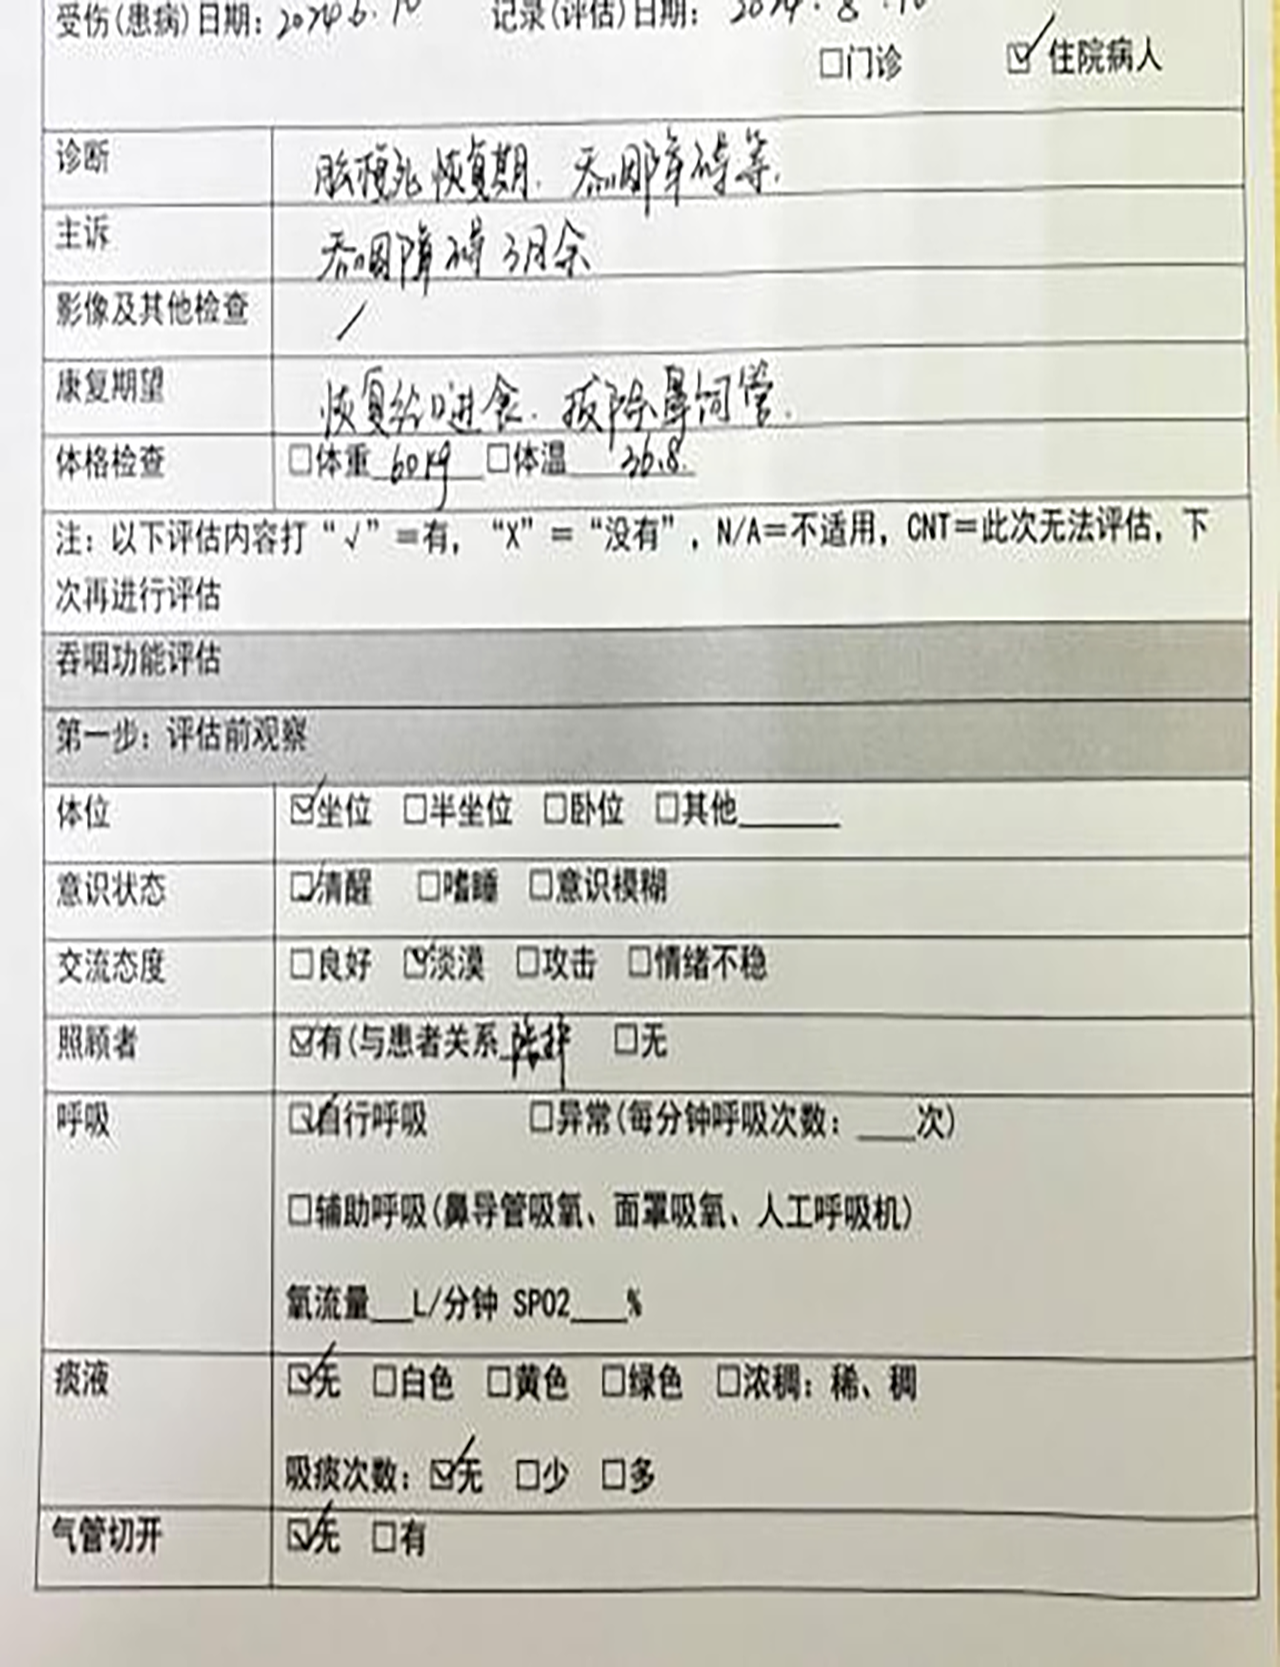 受伤(患病)日期：2024 6. 10 记录(评估)日期： 2024. 8 .10
□门诊 ☑住院病人
诊断 脑梗死恢复期. 吞咽障碍等.
主诉 吞咽障碍 3月余
影像及其他检查 /
康复期望 恢复经口进食. 拔除鼻饲管.
体格检查 □体重 60kg □体温 36.8
注：以下评估内容打“√”＝有，“X”＝“没有”，N/A＝不适用，CNT＝此次无法评估，下
次再进行评估
吞咽功能评估
第一步：评估前观察
体位 ☑坐位 □半坐位 □卧位 □其他____
意识状态 ☑清醒 □嗜睡 □意识模糊
交流态度 □良好 ☑淡漠 □攻击 □情绪不稳
照顾者 ☑有(与患者关系 □无
呼吸 ☑自行呼吸 □异常(每分钟呼吸次数：__次)
□辅助呼吸(鼻导管吸氧、面罩吸氧、人工呼吸机)
氧流量__L/分钟 SPO2__%
痰液 ☑无 □白色 □黄色 □绿色 □浓稠：稀、稠
吸痰次数：☑无 □少 □多
气管切开 ☑无 □有